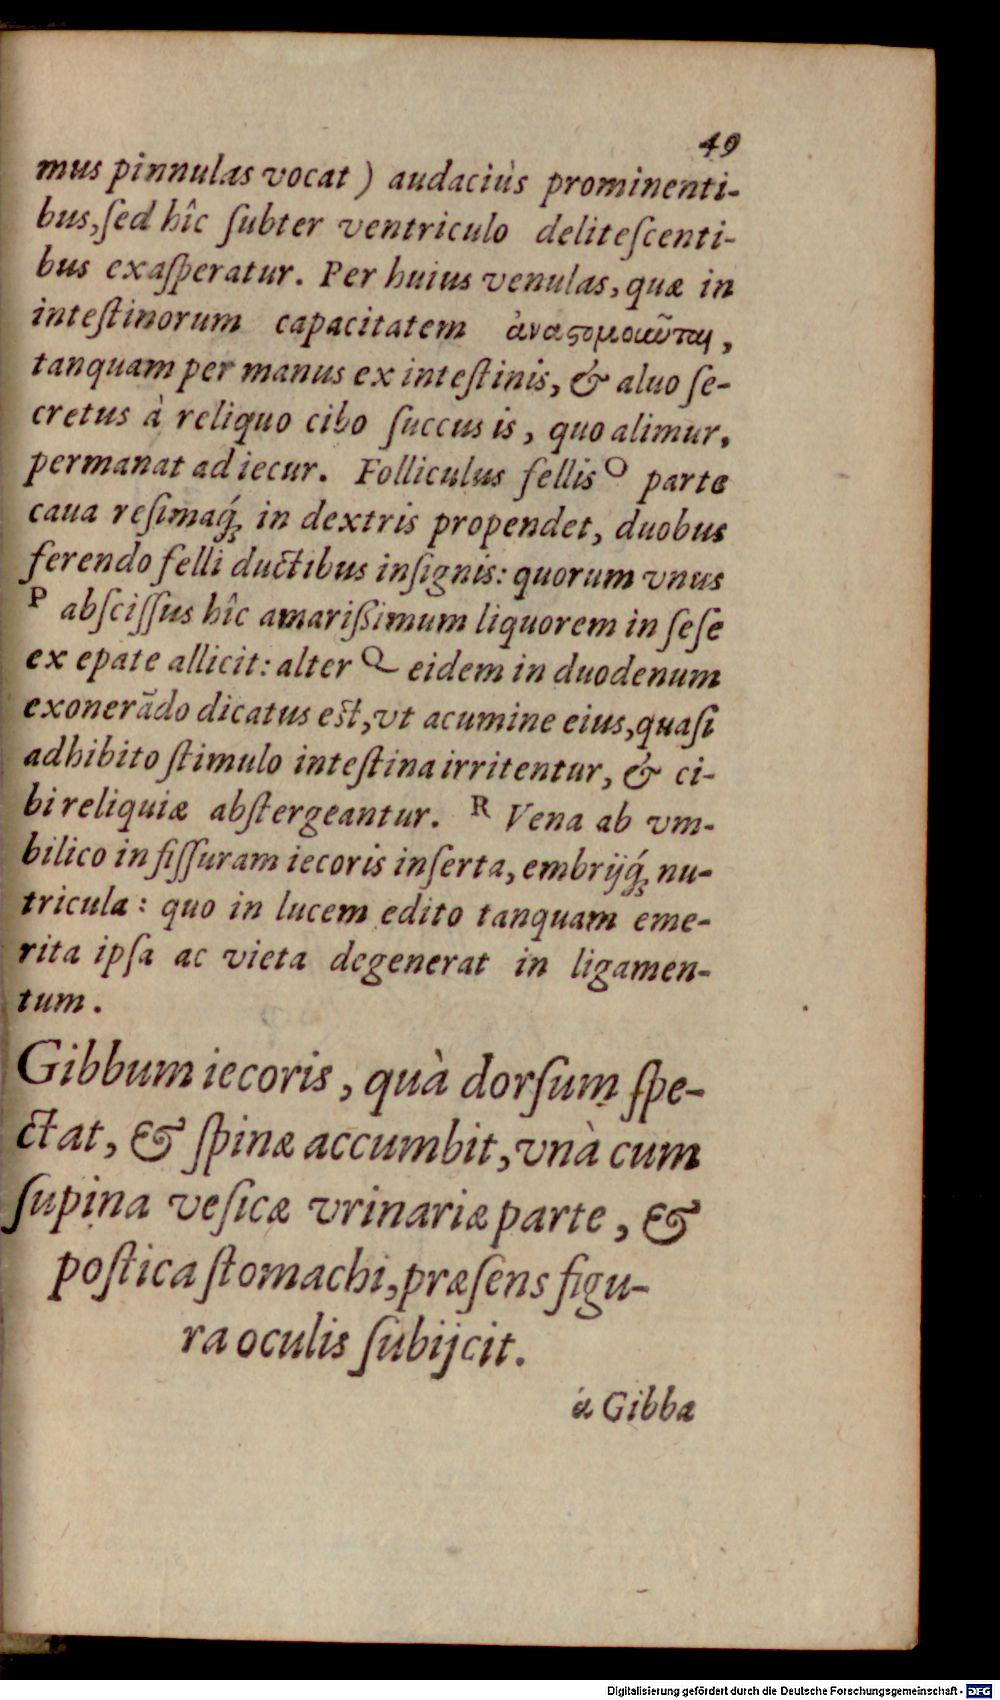 49
mus pinnulas vocat ) audaciùs prominenti-
bus, ſed hîc ſubter ventriculo deliteſcenti-
bus exaſperatur. Per huius venulas, quæ in
inteſtinorum capacitatem ἀναϛομοιωῦται,
tanquam per manus ex inteſtinis, & aluo ſe-
cretus à reliquo cibo ſuccus is, quo alimur,
permanat ad iecur. Folliculus fellis O parte
caua reſimaq́; in dextris propendet, duobus
ferendo felli ductibus inſignis: quorum vnus
P abſciſſus hîc amariſsimum liquorem in ſeſe
ex epate allicit: alter Q eidem in duodenum
exonerādo dicatus eſt, vt acumine eius, quaſi
adhibito ſtimulo inteſtina irritentur, & ci-
bi reliquiæ abſtergeantur. R Vena ab vm-
bilico in fiſſuram iecoris inſerta, embrijq́; nu-
tricula: quo in lucem edito tanquam eme-
rita ipſa ac vieta degenerat in ligamen-
tum.
Gibbum iecoris, quà dorſum ſpe-
ctat, & ſpinæ accumbit, vnà cum
ſupina veſicæ vrinariæ parte, &
poſtica ſtomachi, præſens figu-
ra oculis ſubijcit.
ά Gibba
Digitalisierung gefördert durch die Deutsche Forschungsgemeinschaft - DFG